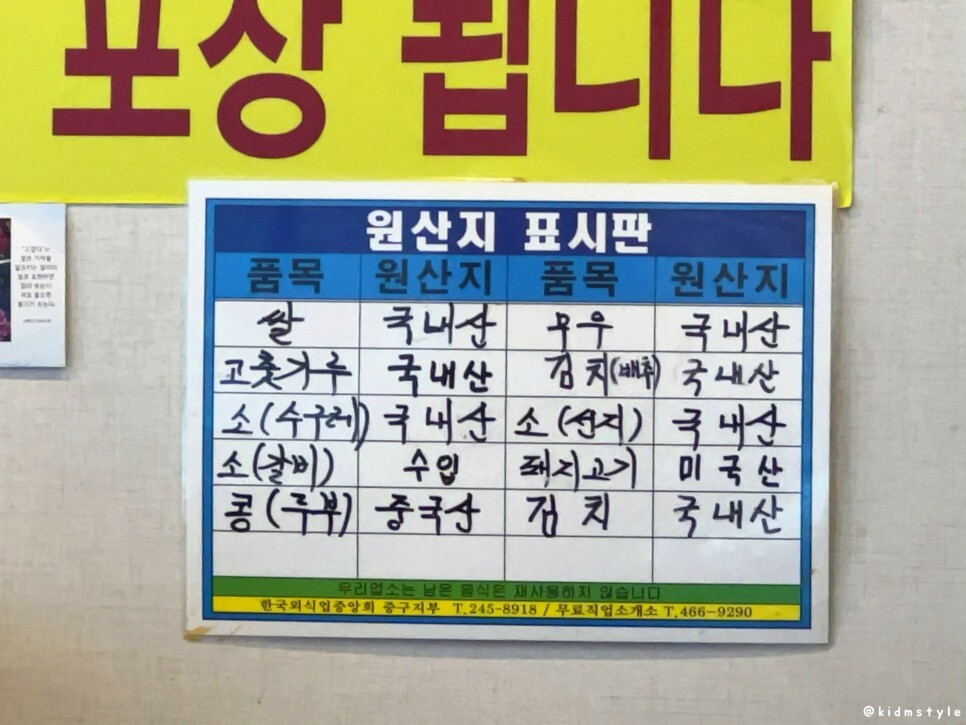 포장 됩니다
원산지 표시판
품목 원산지 품목 원산지
쌀 국내산 무우 국내산
고춧가루 국내산 김치(배추) 국내산
소(수구레) 국내산 소(선지) 국내산
소(갈비) 수입 돼지고기 미국산
콩(두부) 중국산 김치 국내산
우리업소는 남은 음식은 재사용하지 않습니다
한국외식업중앙회 중구지부 T.245-8918 / 무료직업소개소 T.466-9290
@kidmstyle